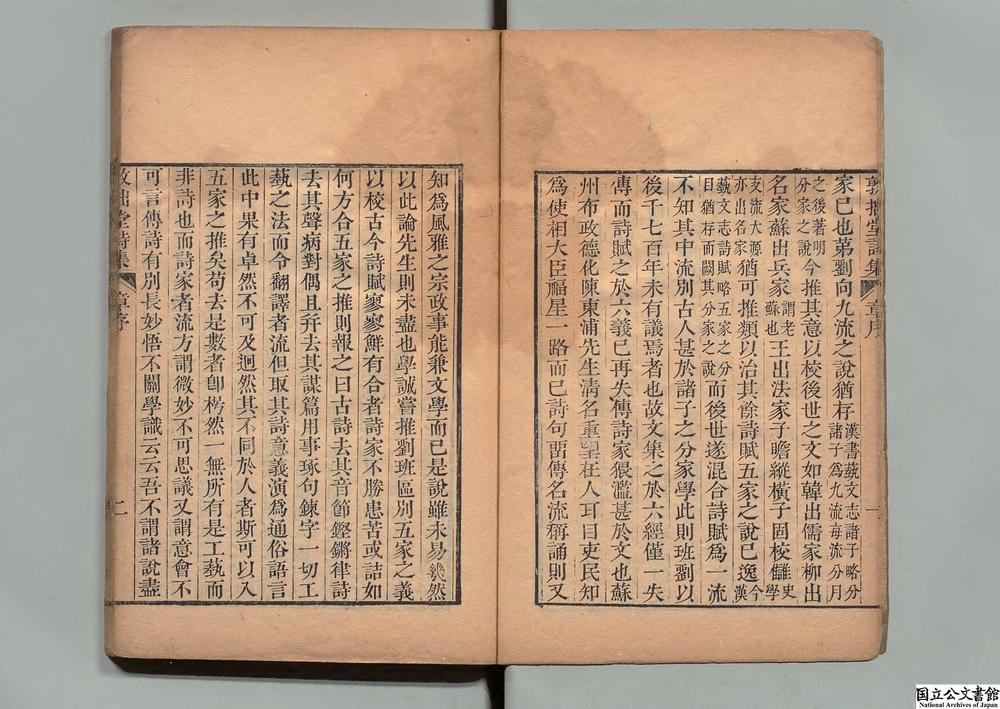 敦拙堂詩集 章序 一
家已也苐劉向九流之說猶存漢書藝文志諸子略分諸子為九流每流分月
之後著明分家之說今推其意以校後世之文如韓出儒家柳出
名家蘇出兵家謂老蘇也王出法家子瞻縱橫子固校讎史學
支流大源亦出名家猶可推類以治其餘詩賦五家之說已逸今漢
藝文志詩賦略五家之分目猶存而闕其分家之說而後世遂混合詩賦為一流
不知其中流別古人甚於諸子之分家學此則班劉以
後千七百年未有議焉者也故文集之於六經僅一失
傳而詩賦之於六義已再失傳詩家猥濫甚於文也蘇
州布政德化陳東浦先生清名重望在人耳目吏民知
為使相大臣福星一路而已詩句畱傳名流稱誦則又
知為風雅之宗政事能兼文學而已是說雖未易幾然
以此論先生則未盡也學誠嘗推劉班區別五家之義
以校古今詩賦寥寥鮮有合者詩家不勝患苦或詰如
何方合五家之推則報之曰古詩去其音節鏗鏘律詩
去其聲病對偶且幷去其謀篇用事琢句鍊字一切工
藝之法而令翻譯者流但取其詩意義演為通俗語言
此中果有卓然不可及迥然其不同於人者斯可以入
五家之推矣苟去是數者卽枵然一無所有是工藝而
非詩也而詩家者流方謂微妙不可思議又謂意會不
可言傳詩有別長妙悟不關學識云云吾不謂諸說盡
敦拙堂詩集 章序 二
国立公文書館
National Archives of Japan